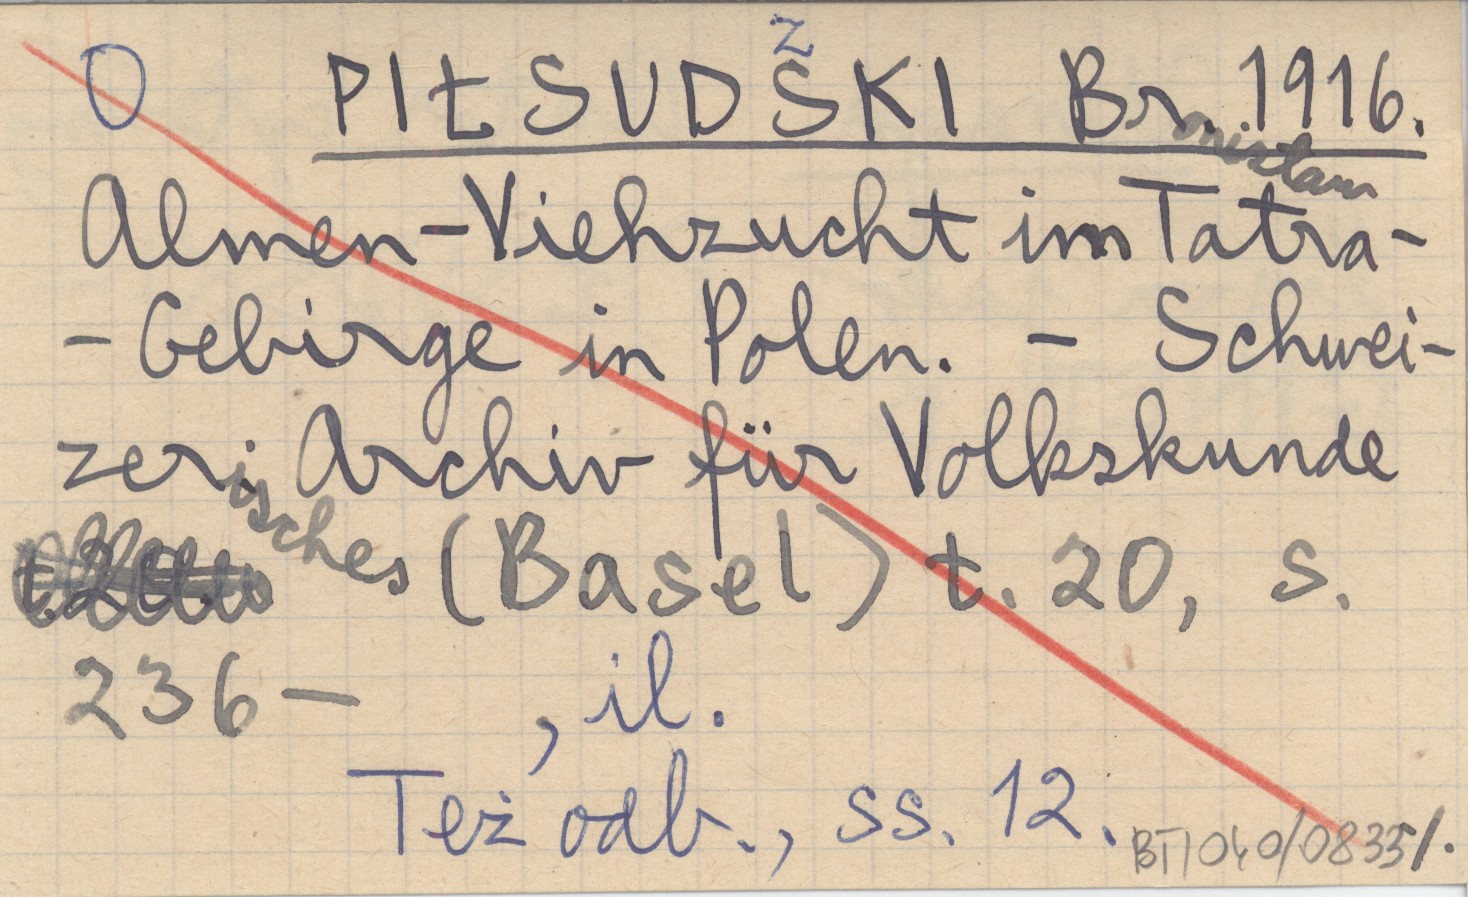 O PIŁSUDSKI Br. 1916.
ž
onisław
Almen-Viehzucht im Tatra-
-Gebirge in Polen. - Schwei-
zerisches Archiv für Volkskunde
(Basel) t. 20, s.
236- , il.
Też odb., ss. 12.
BT/040/0835/.